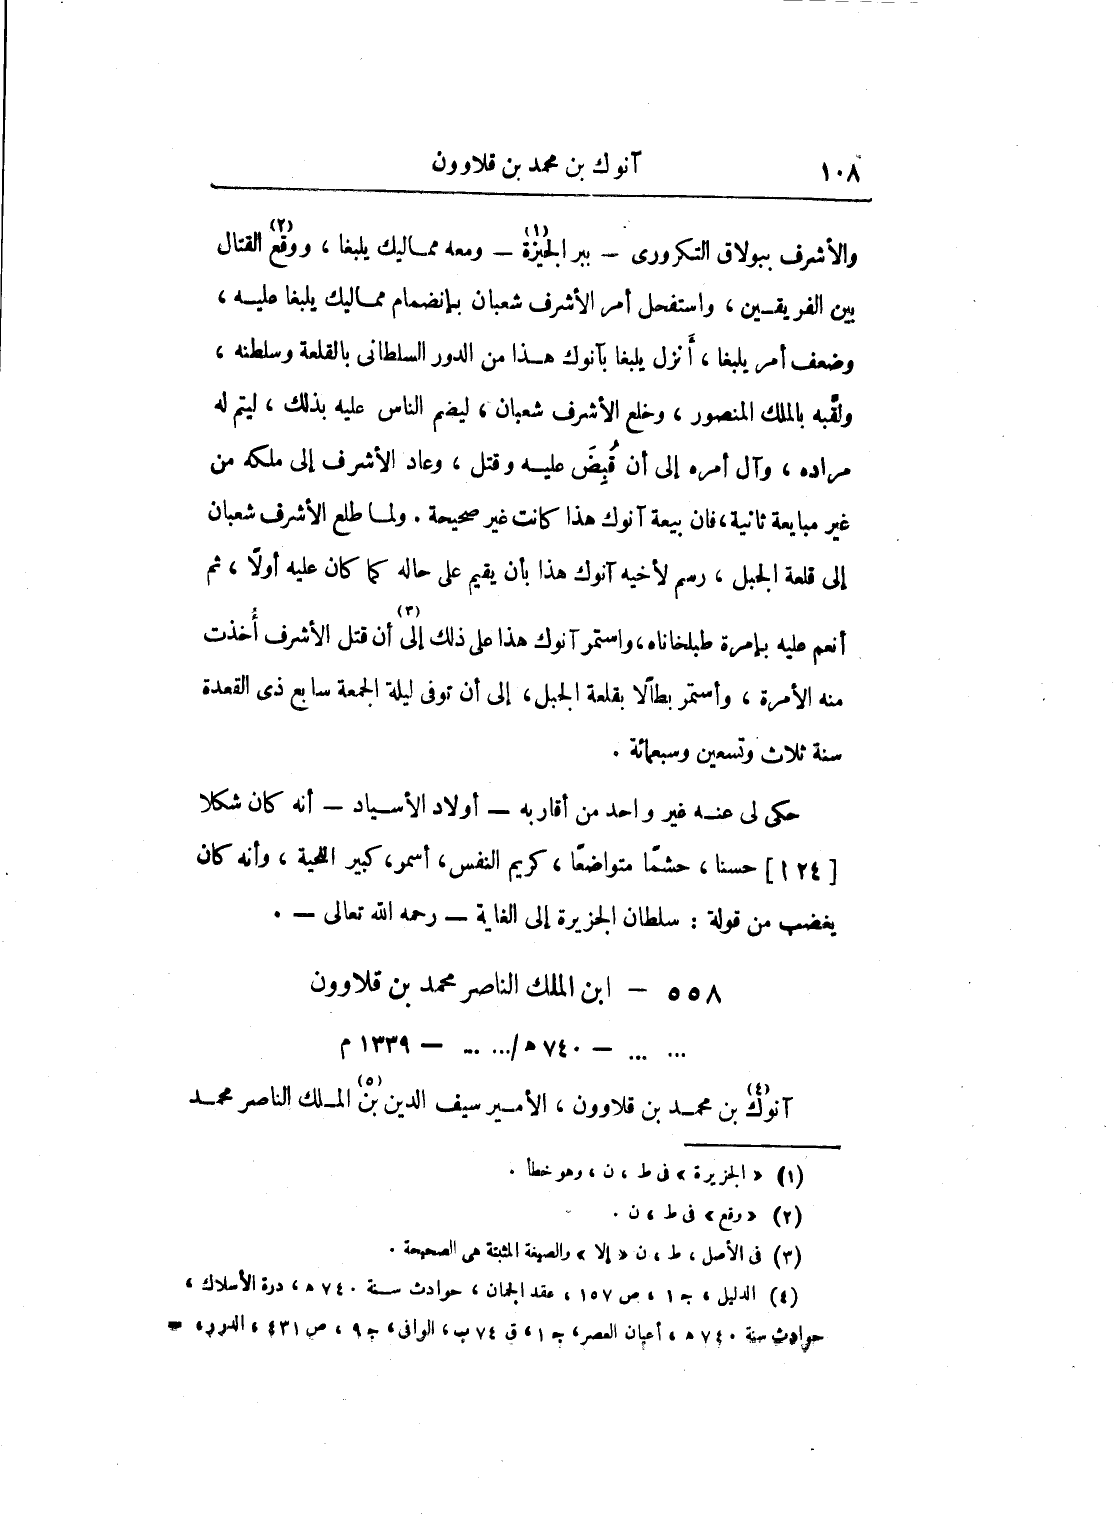 ١٠٨ آنوك بن محمد بن قلاوون
والأشرف ببولاق التكرورى – ببر الجيزة (١) – ومعه مماليك يلبغا ، ووقع (٢) القتال
بين الفريقين ، واستفحل أمر الأشرف شعبان بإنضمام مماليك يلبغا عليه ،
وضعف أمر يلبغا ، أَنزل يلبغا بآنوك هذا من الدور السلطانى بالقلعة وسلطنه ،
ولقَّبه بالملك المنصور ، وخلع الأشرف شعبان ، ليضم الناس عليه بذلك ، ليتم له
مراده ، وآل أمره إلى أن قُبِضَ عليه وقتل ، وعاد الأشرف إلى ملكه من
غير مبايعة ثانية ، فان بيعة آنوك هذا كانت غير صحيحة . ولما طلع الأشرف شعبان
إلى قلعة الجبل ، رسم لأخيه آنوك هذا بأن يقيم على حاله كما كان عليه أولًا ، ثم
أنعم عليه بإمرة طبلخاناه ، واستمر آنوك هذا على ذلك إلى (٣) أن قتل الأشرف أُخذت
منه الأمرة ، وأستمر بطالًا بقلعة الجبل ، إلى أن توفى ليلة الجمعة سابع ذى القعدة
سنة ثلاث وتسعين وسبعمائة .
حكى لى عنه غير واحد من أقاربه – أولاد الأسياد – أنه كان شكلا
[ ١٢٤ ] حسنا ، حشمًا متواضعًا ، كريم النفس ، أسمر ، كبير اللحية ، وأنه كان
يغضب من قولة : سلطان الجزيرة إلى الغاية – رحمه الله تعالى – .
٥٥٨ – ابن الملك الناصر محمد بن قلاوون
... ... – ٧٤٠ ه/... ... – ١٣٣٩ م
آنوك (٤) بن محمد بن قلاوون ، الأمير سيف الدين بن (٥) الملك الناصر محمد
(١) « الجزيرة » فى ط ، ن ، وهو خطأ .
(٢) « وقع » فى ط ، ن .
(٣) فى الأصل ، ط ، ن « إلا » والصيغة المثبتة هى الصحيحة .
(٤) الدليل ، ج ١ ، ص ١٥٧ ، عقد الجمان ، حوادث سنة ٧٤٠ ه ، درة الأسلاك ،
حوادث سنة ٧٤٠ ه ، أعيان العصر ، ج ١ ، ق ٧٤ ب ، الوافى ، ج ٩ ، ص ٤٣١ ، الدرر ، =